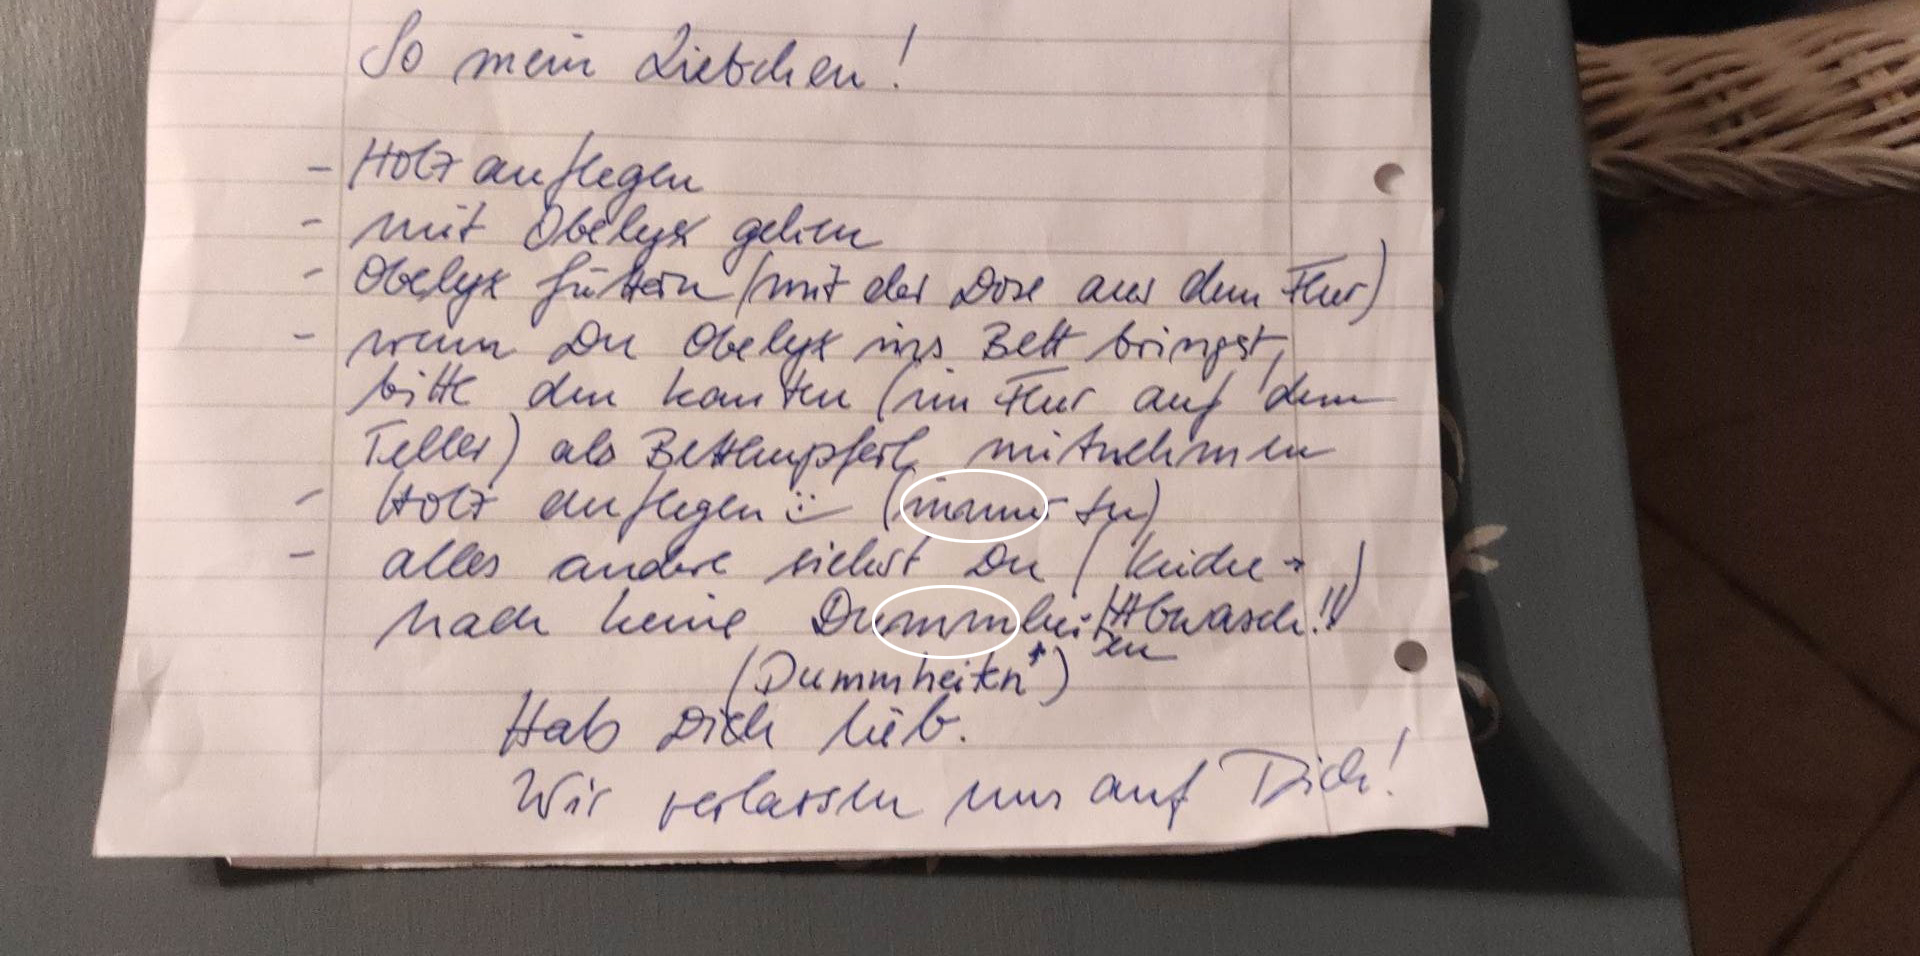 So mein Liebchen!
- Holz auflegen
- mit Obelyx gehen
- Obelyx füttern (mit der Dose aus dem Flur)
- wenn Du Obelyx ins Bett bringst,
bitte den Kanten (im Flur auf dem
Teller) als Betthupferl mitnehmen
- Holz auflegen :) (immer zu)
- alles andere siehst Du (Küche →
Abwasch!!)
mach keine Dummheiten
(Dummheiten*)
Hab Dich lieb.
Wir verlassen uns auf Dich!